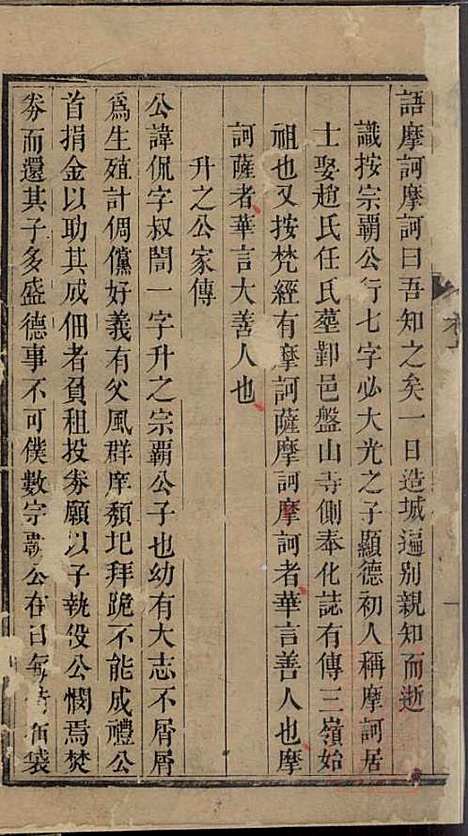 語摩訶摩訶曰吾知之矣一日造城遍别親知而逝
識按宗霸公行七字必大光之子顯德初人稱摩訶居
士娶趙氏任氏墓鄞邑盤山寺側奉化誌有傳三嶺始
祖也又按梵經有摩訶薩摩訶者華言善人也摩
訶薩者華言大善人也
升之公家傳
公諱侃字叔誾一字升之宗霸公子也幼有大志不屑屑
爲生殖計倜儻好義有父風群庠頽圮拜跪不能成禮公
首捐金以助其成佃者負租投劵願以子執役公憫焉焚
劵而還其子多盛德事不可僕數宗霸公在日每 布袋